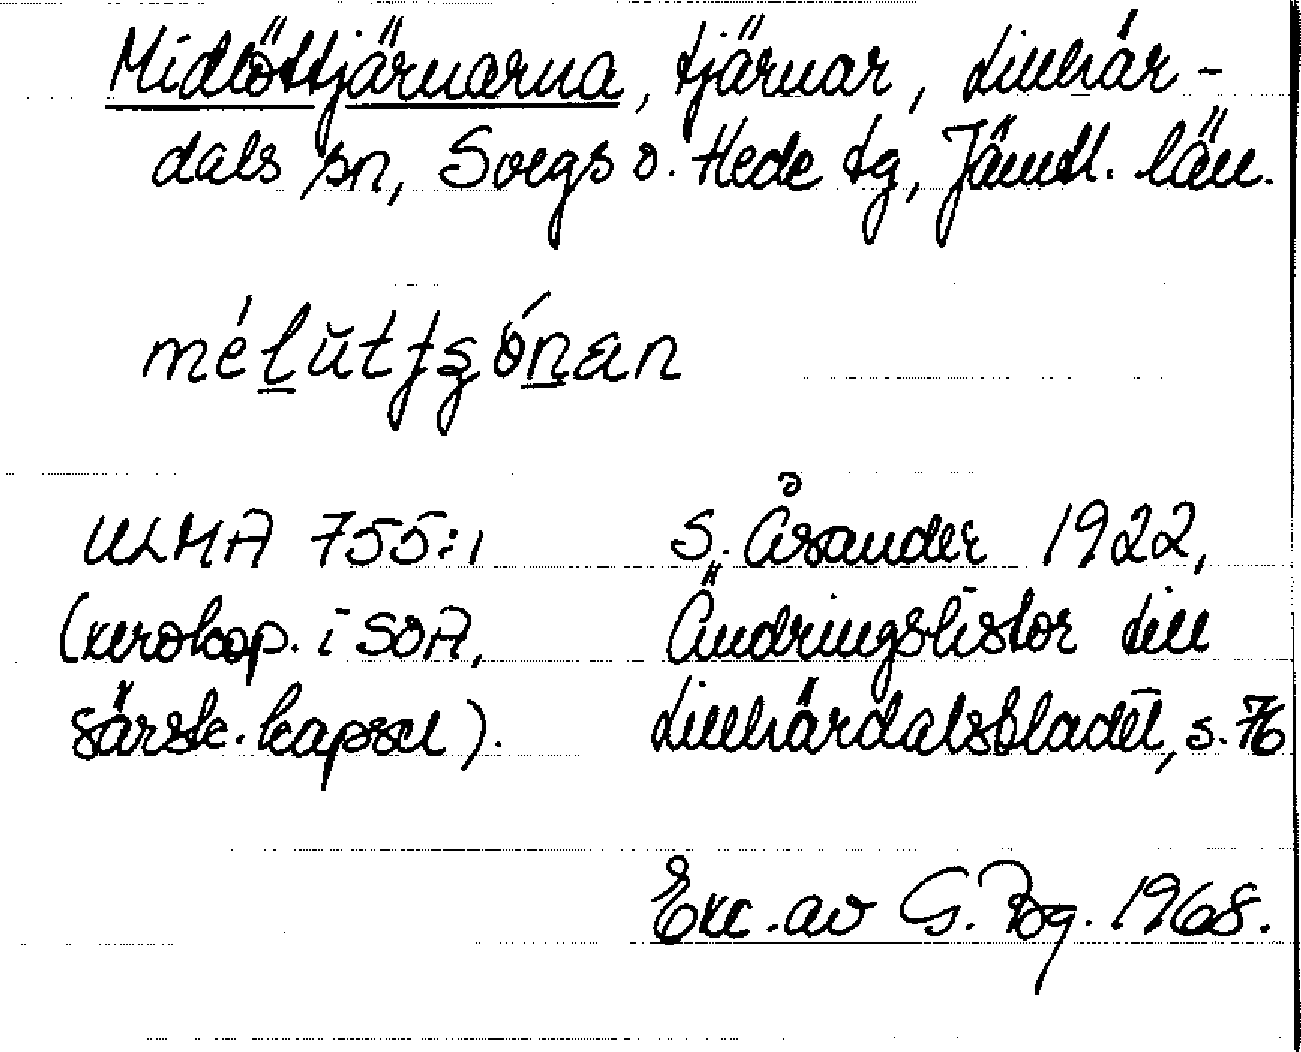 Midlöttjärnarna, tjärnar, Lillhär-
dals sn, Svegs o. Hede tg, Jämtl. län.
ULMA 755:1
(xerokop. i SOA,
särsk. kapsel).
S. Åsander 1922,
Ändringslistor till
Lillhärdalsbladet, s. 76
Exc. av G. Bg. 1968.